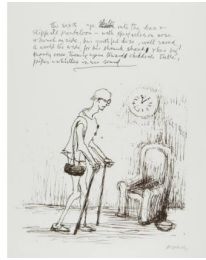 the sixth age shifts into the lean &
slipper'd pantaloon - with spectacles on nose
& pouch on side, his youthful hose, well saved,
a world too wide for his shrunk shank; & his big
manly voice, turning again toward childish treble,
pipes & whistles in his sound